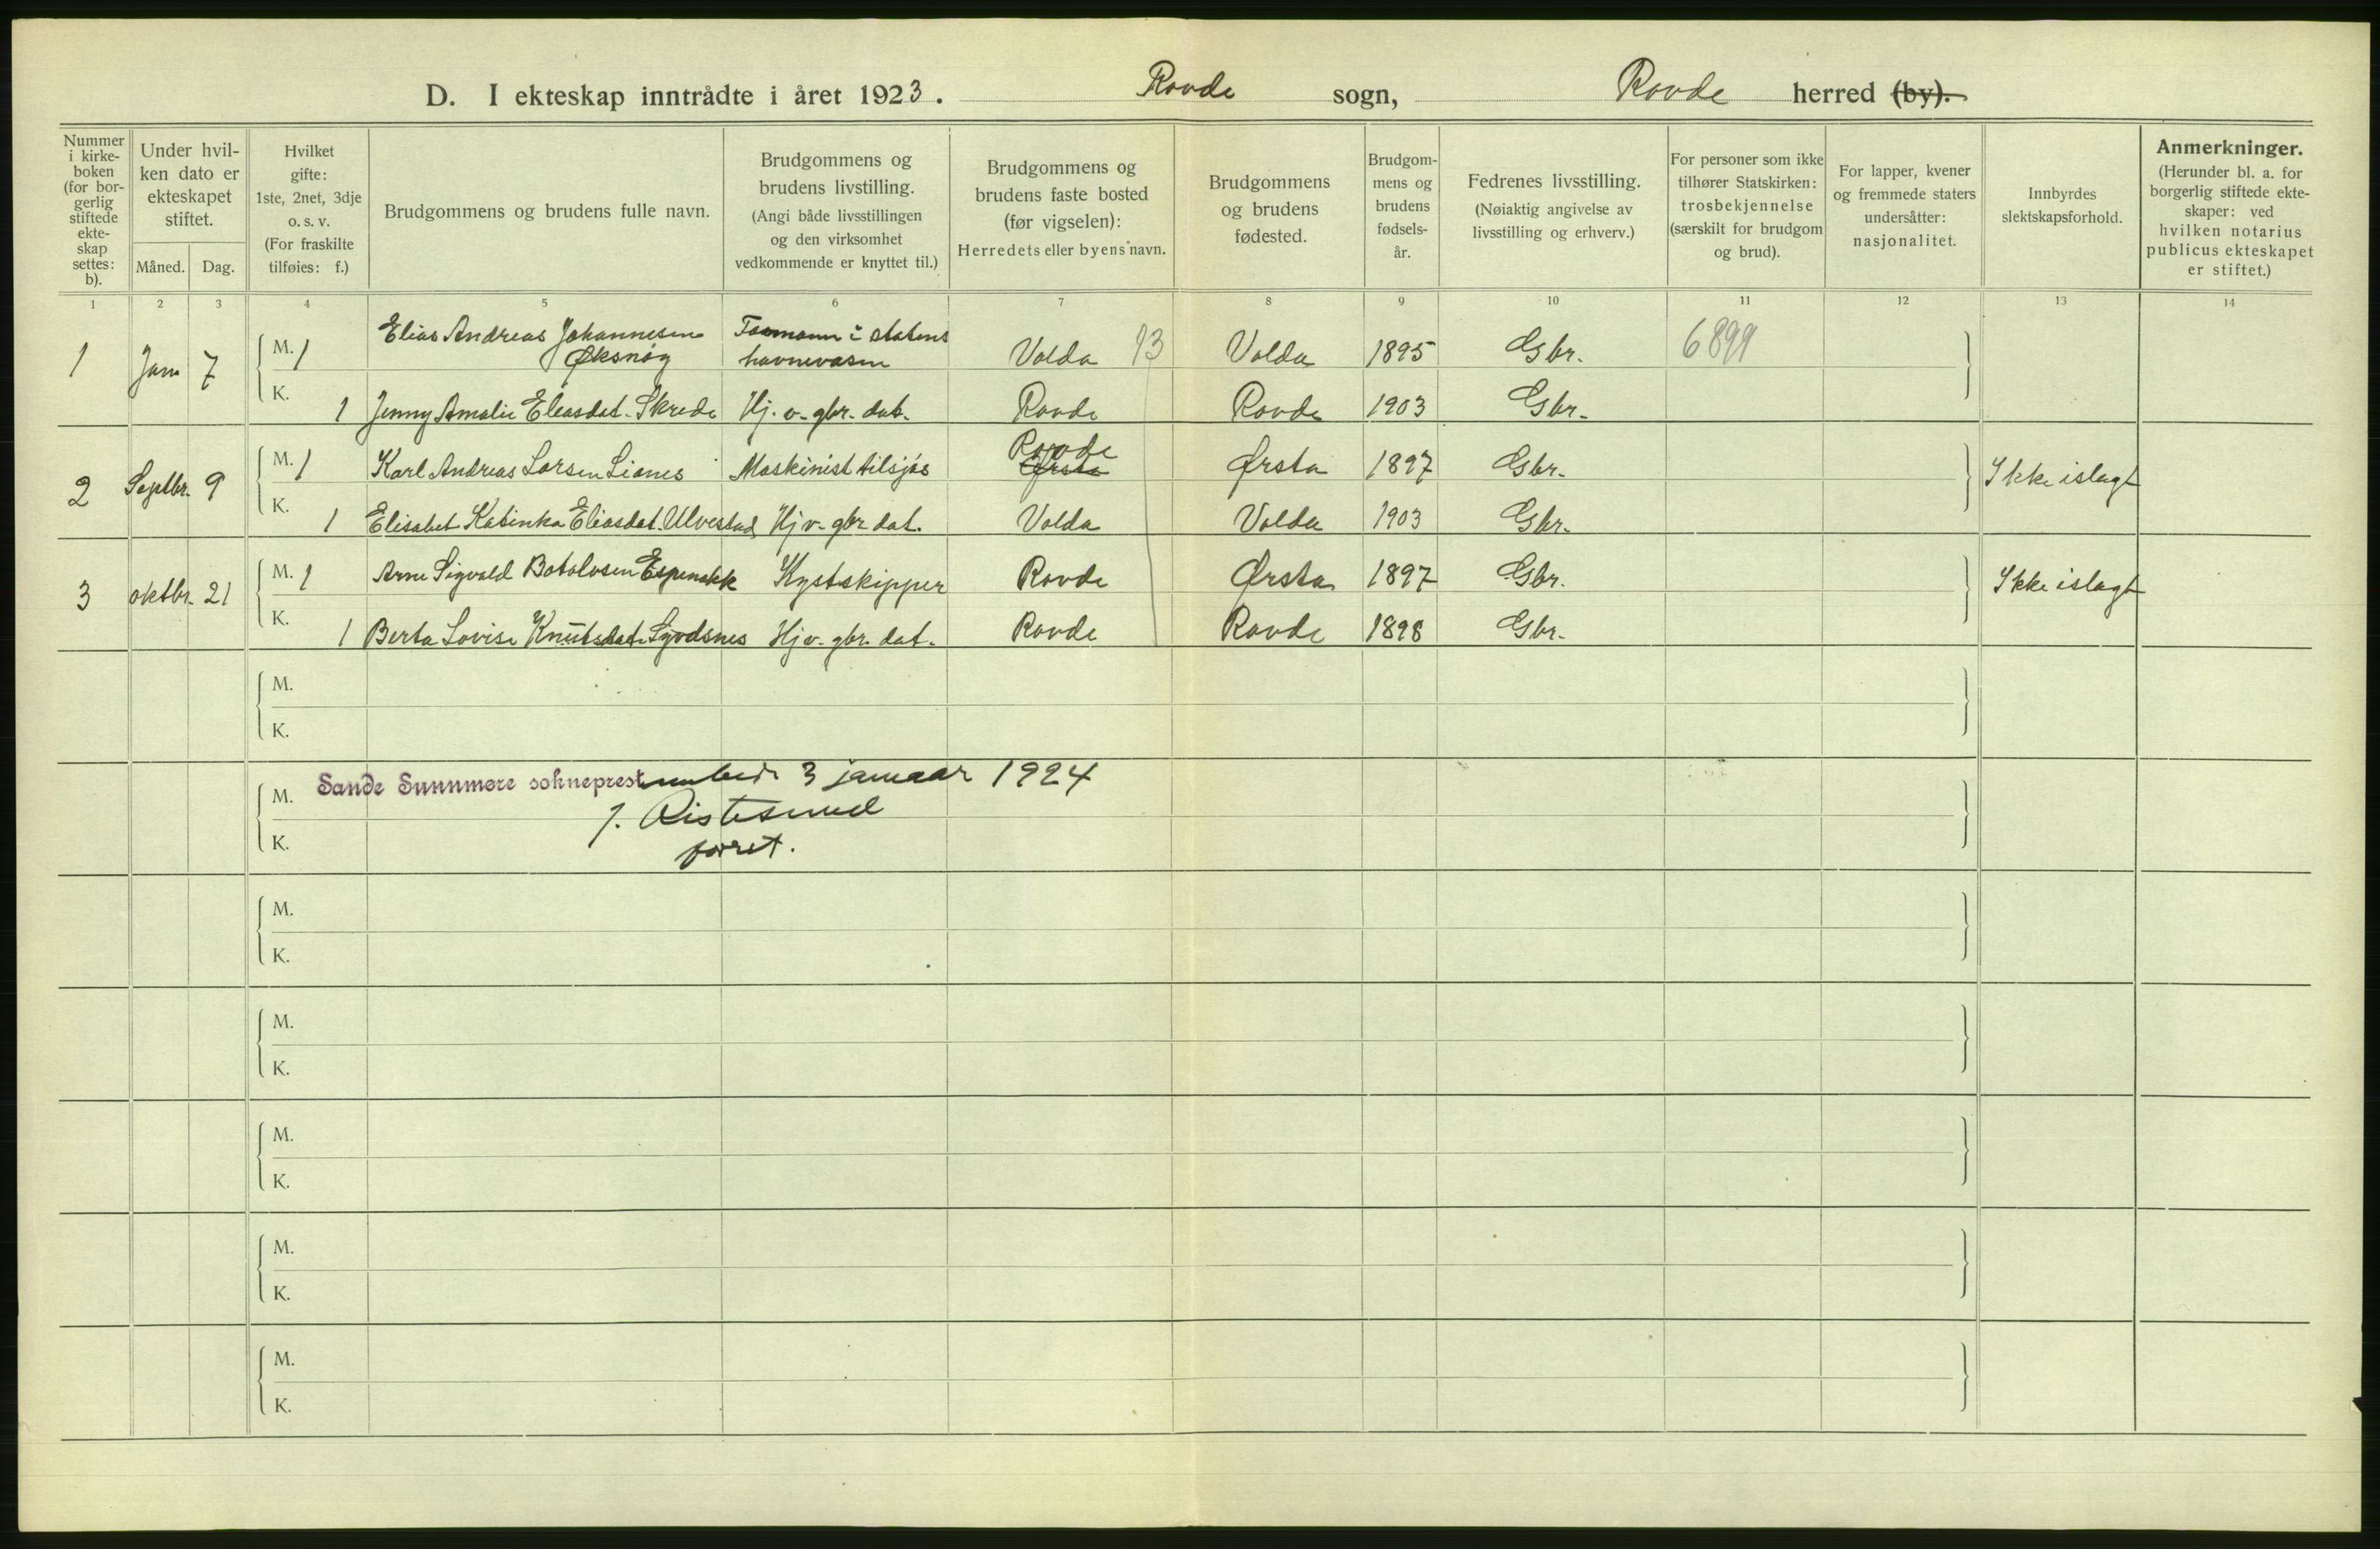 D. I ekteskap inntrådte i året 1923. Rovde sogn, Rovde herred (by).
Nummer i kirkeboken (for borgerlig stiftede ekteskap settes: b).
Under hvilken dato er ekteskapet stiftet.
Måned. Dag.
Hvilket gifte: 1ste, 2net, 3dje o. s. v. (For fraskilte tilføies: f.)
Brudgommens og brudens fulle navn.
Brudgommens og brudens livstilling. (Angi både livsstillingen og den virksomhet vedkommende er knyttet til.)
Brudgommens og brudens faste bosted (før vigselen): Herredets eller byens navn.
Brudgommens og brudens fødested.
Brudgommens og brudens fødselsår.
Fedrenes livsstilling. (Nøiaktig angivelse av livsstilling og erhverv.)
For personer som ikke tilhører Statskirken: trosbekjennelse (særskilt for brudgom og brud).
For lapper, kvener og fremmede staters undersåtter: nasjonalitet.
Innbyrdes slektskapsforhold.
Anmerkninger. (Herunder bl. a. for borgerlig stiftede ekteskaper: ved hvilken notarius publicus ekteskapet er stiftet.)
1 2 3 4 5 6 7 8 9 10 11 12 13 14
1 Jan 7 M. 1 Elias Andreas Johannesen Øksnøy i statens havnevæsen Volda 13 Volda 1895 Gbr. 6899
K. 1 Jenny Amalie Eleasdat. Skrede Hj. v. gbr. dat. Rovde Rovde 1903 Gbr.
2 Septbr. 9 M. 1 Karl Andreas Larsen Lianes Maskinist tilsjøs Rovde Ørsta Ørsta 1897 Gbr. Ikke islagt
K. 1 Elisabet Katinka Eliasdat. Ulvestad Hj v. gbr. dat. Volda Volda 1903 Gbr.
3 oktbr. 21 M. 1 Arne Sigvald Botolvsen Espenakk Kystskipper Rovde Ørsta 1897 Gbr. Ikke islagt
K. 1 Berta Lovise Knutsdat. Syvdsnes Hj v. gbr. dat. Rovde Rovde 1898 Gbr.
M.
K.
M. Sande Sunnmøre sokneprestumbede 3 januar 1924
J. Ristesund
K.
M.
K.
M.
K.
M.
K.
M.
K.
M.
K.